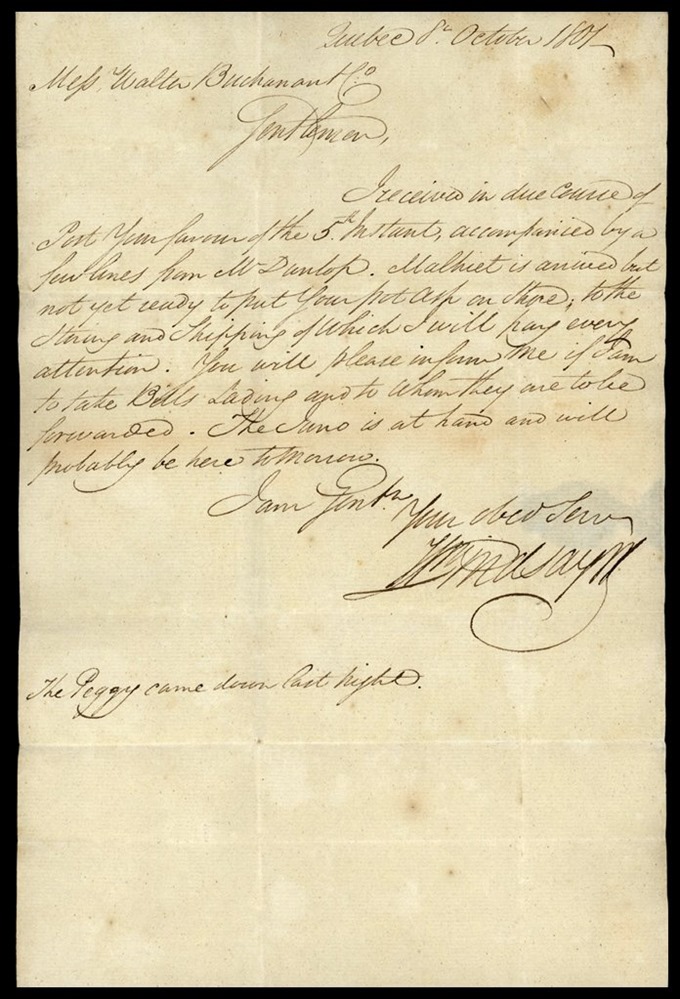 Quebec 8th October 1801
Mess. Walter Buchanan & Co.
Gentlemen,
I received in due Course of
Post Your favour of the 5th Instant, accompanied by a
few lines from Mr Dunlop. Malhiet is arrived but
not yet ready to put Your pot ash on Shore; to the
Storing and Shipping of Which I will pay every
attention. You will please inform Me if I am
to take Bills Lading and to Whom they are to be
forwarded. The Juno is at hand and will
probably be here tomorrow.
I am Gentn.
Your obed Serv
Wm Lindsay
The Peggy came down last night.